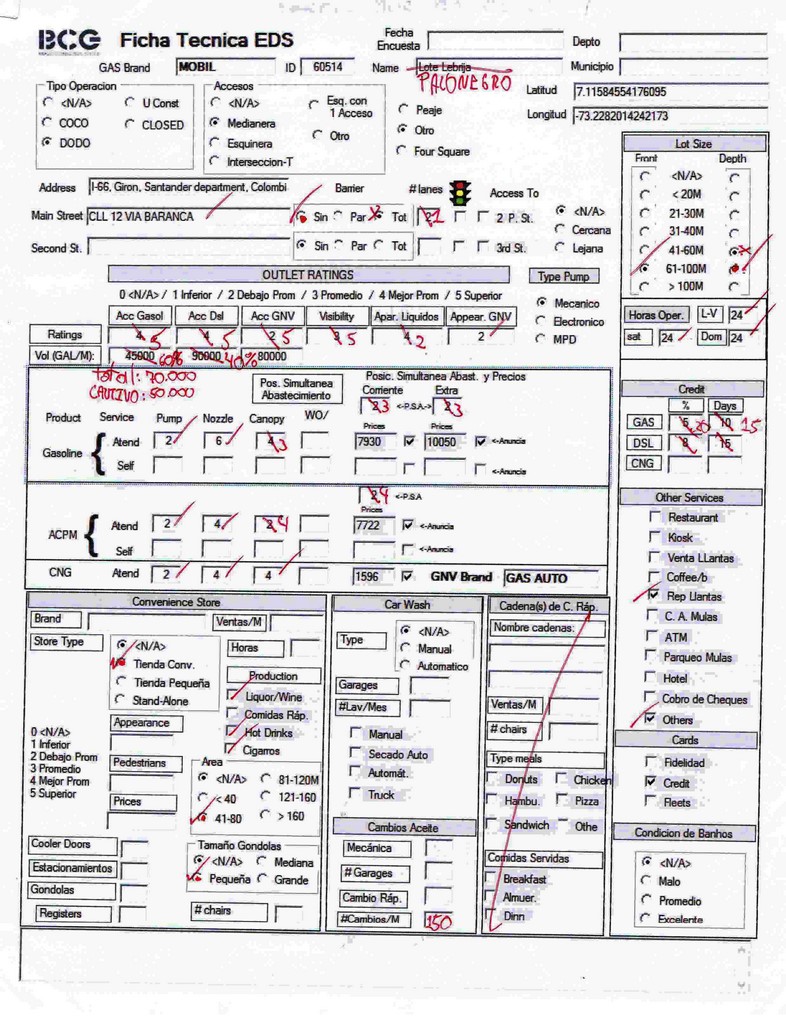 BCG Ficha Tecnica EDS
Fecha Encuesta
Depto
GAS Brand MOBIL ID 60514 Name Lote Lebrija
Municipio
PALONEGRO
Tipo Operacion
<N/A> U Const
COCO CLOSED
DODO
Accesos
<N/A> Esq. con 1 Acceso
Medianera
Esquinera Otro
Interseccion-T
Peaje
Otro
Four Square
Latitud 7.11584554176095
Longitud -73.2282014242173
Address I-66, Giron, Santander department, Colombi Barrier # lanes Access To
Main Street CLL 12 VIA BARANCA Sin Par Tot 2 1 2 P. St.
Second St. Sin Par Tot 3rd St.
<N/A>
Cercana
Lejana
Lot Size
Front Depth
<N/A>
< 20M
21-30M
31-40M
41-60M
61-100M
> 100M
OUTLET RATINGS
0 <N/A> / 1 Inferior / 2 Debajo Prom / 3 Promedio / 4 Mejor Prom / 5 Superior
Acc Gasol Acc Dsl Acc GNV Visibility Apar. Liquidos Appear. GNV
Ratings 4 5 4 5 2 5 3 5 4 2 2
Vol (GAL/M): 45000 60% 90000 40% 80000
total: 70.000
CAUTIVO: 50.000
Type Pump
Mecanico
Electronico
MPD
Horas Oper. L-V 24
sat 24 Dom 24
Pos. Simultanea Abastecimiento
Posic. Simultanea Abast. y Precios
Corriente Extra
23 <-P.S.A-> 23
Product Service Pump Nozzle Canopy WO/
Prices Prices
Gasoline Atend 2 6 4 3 7930 10050 <-Anuncia
Self <-Anuncia
24 <-P.S.A
Prices
ACPM Atend 2 4 2 4 7722 <-Anuncia
Self <-Anuncia
CNG Atend 2 4 4 1596 GNV Brand GAS AUTO
Credit
% Days
GAS 5 20 10 15
DSL 8 15
CNG
Other Services
Restaurant
Kiosk
Venta LLantas
Coffee/b
Rep Llantas
C. A. Mulas
ATM
Parqueo Mulas
Hotel
Cobro de Cheques
Others
Cards
Fidelidad
Credit
Fleets
Condicion de Banhos
<N/A>
Malo
Promedio
Excelente
Convenience Store
Brand Ventas/M
Store Type
<N/A>
Tienda Conv.
Tienda Pequeña
Stand-Alone
Horas
Production
Liquor/Wine
Comidas Ráp.
Hot Drinks
Cigarros
0 <N/A>
1 Inferior
2 Debajo Prom
3 Promedio
4 Mejor Prom
5 Superior
Appearance
Pedestrians
Prices
Area
<N/A> 81-120M
< 40 121-160
41-80 > 160
Cooler Doors
Estacionamientos
Gondolas
Registers
Tamaño Gondolas
<N/A> Mediana
Pequeña Grande
# chairs
Car Wash
Type
<N/A>
Manual
Automatico
Garages
#Lav/Mes
Manual
Secado Auto
Automát.
Truck
Cambios Aceite
Mecánica
# Garages
Cambio Ráp.
#Cambios/M 150
Cadena(s) de C. Ráp.
Nombre cadenas:
Ventas/M
# chairs
Type meals
Donuts Chicken
Hambu. Pizza
Sandwich Othe
Comidas Servidas
Breakfast
Almuer.
Dinn